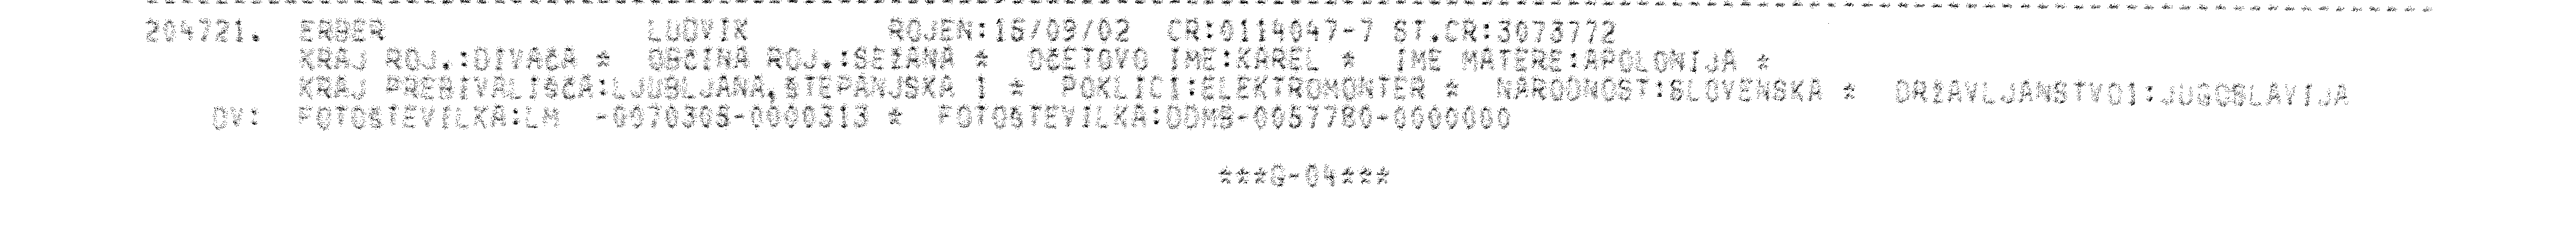 204721. ERBER LUDVIK ROJEN:15/09/02 CR:0114047-7 ST.CR:3073772
KRAJ ROJ.:DIVAČA * OBČINA ROJ.:SEŽANA * OČETOVO IME:KAREL * IME MATERE:APOLONIJA *
KRAJ PREBIVALIŠČA:LJUBLJANA,ŠTEPANJSKA 1 * POKLICI:ELEKTROMONTER * NARODNOST:SLOVENSKA * DRŽAVLJANSTVO1:JUGOSLAVIJA
DV: FOTOŠTEVILKA:LM -0070305-0000313 * FOTOŠTEVILKA:DDMB-0057780-0000000
***G-04***